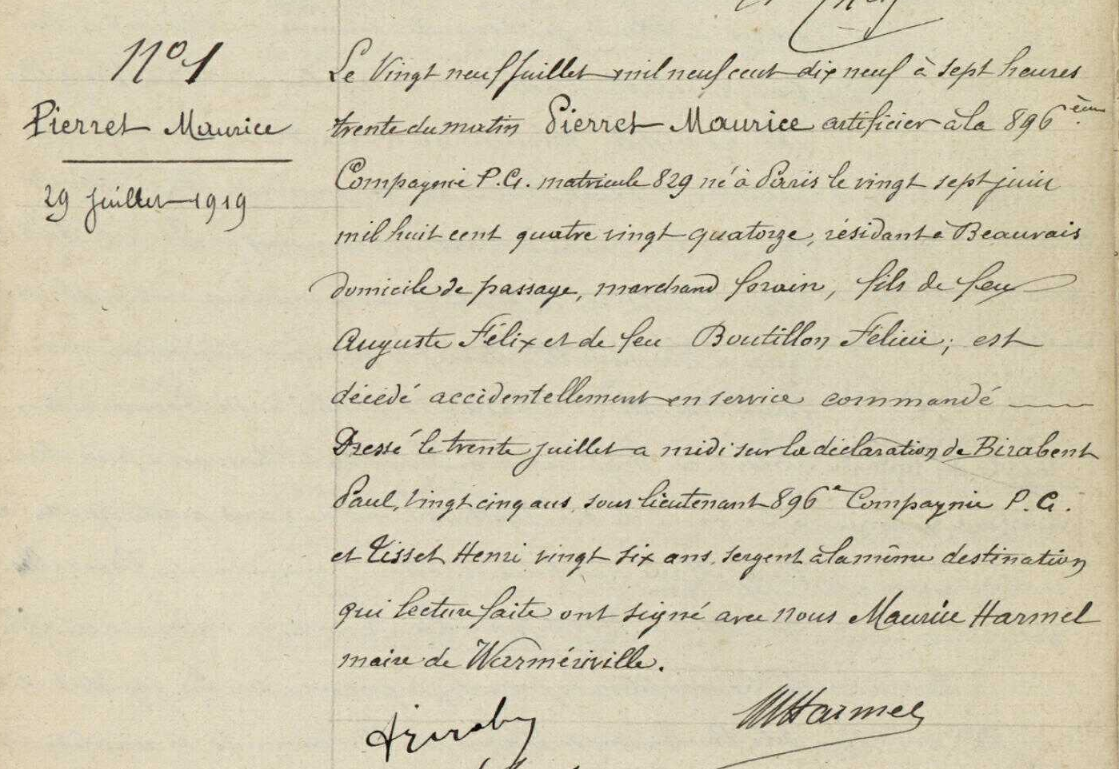 N° 1
Pierret Maurice
29 juillet 1919
Le vingt neuf juillet mil neuf cent dix neuf à sept heures
trente du matin Pierret Maurice artificier à la 896ème
Compagnie P.G. matricule 829 né à Paris le vingt sept juin
mil huit cent quatre vingt quatorze, résidant à Beauvais
domicile de passage, marchand forain, fils de feu
Auguste Félix et de feu Boutillon Félicie ; est
décédé accidentellement en service commandé
Dressé le trente juillet a midi sur la déclaration de Birabent
Paul, vingt cinq ans, sous lieutenant 896e Compagnie P.G.
et Tisset Henri vingt six ans, sergent à la même destination
qui lecture faite ont signé avec nous Maurice Harmel
maire de Warmériville.
MHarmel